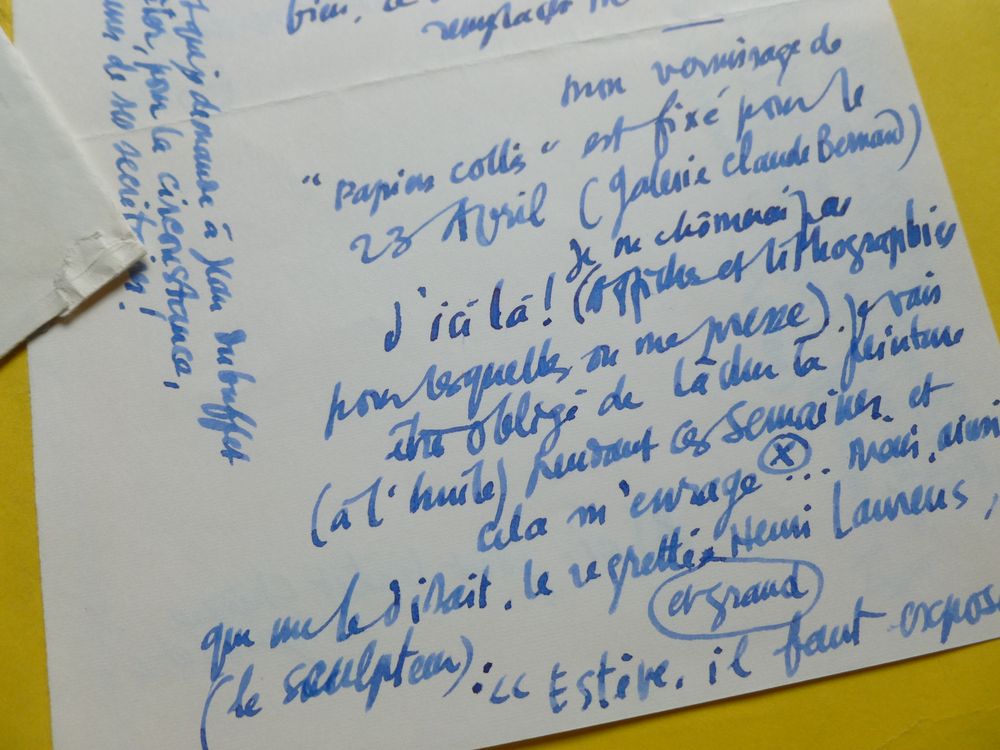 bien, ce
remplacer
mon vernissage de
"Papiers collés" est fixé pour le
23 Avril (Galerie Claude Bernard)
Je ne chômerai pas
d'ici là ! (affiche et lithographies
pour lesquelles on me presse). Je vais
être obligé de lâcher la peinture
(à l'huile) pendant ces semaines et
cela m'enrage (x)... Mais, ainsi
que me le disait, le regretté Henri Laurens,
et grand
(le sculpteur) : "Estève, il faut expos
que je demande à Jean Dubuffet
pour la circonstance,
de ses secrétaires !